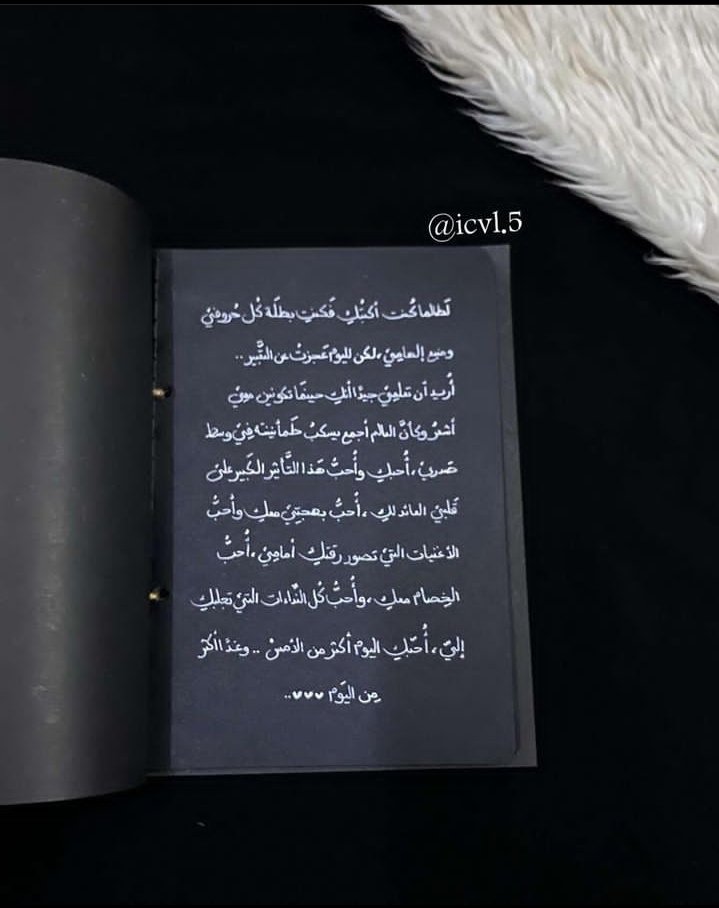 @icvl.5
لَطالما كُنت أكتبُكِ فَكنتِ بطلَة كُل حُروفيْ
ومنبع إلهاميْ ،لكن لليوم عَجزتْ عن التَّعبير ..
أُريد أن تعلميْ جيدًا أنكِ حينمَا تكونين معيْ
أشعُر وكأنَّ العالم أجمع يسكبُ طمأنينته فيْ وسط
صَدريْ ، أُحبكِ وأُحبُّ هَذا التَّأثير الكَبير علىْ
قَلبيْ العائد لكِ ،أُحبُّ بهجتيْ معكِ وأُحبُّ
الأغنيات التيْ تصور رقتكِ أماميْ ،أُحبُّ
الخِصام معكِ ،وأُحبُّ كُل النّداءات التيْ تجلبكِ
إليّ ، أُحبّكِ اليوم أكثر من الأمسْ .. وغدًا أكثر
مِن اليَوم ♥♥♥..